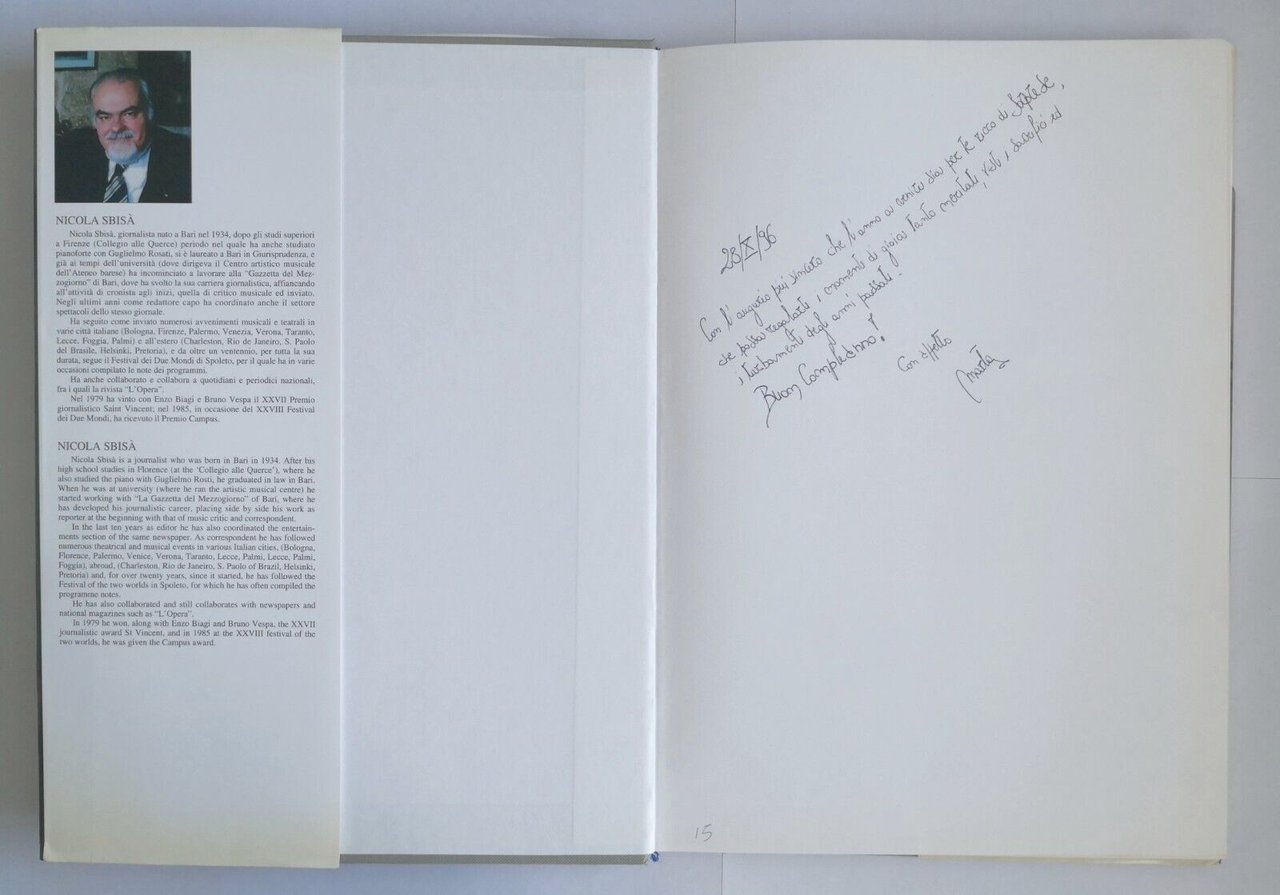 NICOLA SBISÀ
Nicola Sbisà, giornalista nato a Bari nel 1934, dopo gli studi superiori
a Firenze (Collegio alle Querce) periodo nel quale ha anche studiato
pianoforte con Guglielmo Rosati, si è laureato a Bari in Giurisprudenza, e
già ai tempi dell'università (dove dirigeva il Centro artistico musicale
dell'Ateneo barese) ha incominciato a lavorare alla "Gazzetta del Mez-
zogiorno" di Bari, dove ha svolto la sua carriera giornalistica, affiancando
all'attività di cronista agli inizi, quella di critico musicale ed inviato.
Negli ultimi anni come redattore capo ha coordinato anche il settore
spettacoli dello stesso giornale.
Ha seguito come inviato numerosi avvenimenti musicali e teatrali in
varie città italiane (Bologna, Firenze, Palermo, Venezia, Verona, Taranto,
Lecce, Foggia, Palmi) e all'estero (Charleston, Rio de Janeiro, S. Paolo
del Brasile, Helsinki, Pretoria), e da oltre un ventennio, per tutta la sua
durata, segue il Festival dei Due Mondi di Spoleto, per il quale ha in varie
occasioni compilato le note dei programmi.
Ha anche collaborato e collabora a quotidiani e periodici nazionali,
fra i quali la rivista "L'Opera".
Nel 1979 ha vinto con Enzo Biagi e Bruno Vespa il XXVII Premio
giornalistico Saint Vincent, nel 1985, in occasione del XXVIII Festival
dei Due Mondi, ha ricevuto il Premio Campus.
NICOLA SBISÀ
Nicola Sbisà is a journalist who was born in Bari in 1934. After his
high school studies in Florence (at the 'Collegio alle Querce'), where he
also studied the piano with Guglielmo Rosti, he graduated in law in Bari.
When he was at university (where he ran the artistic musical centre) he
started working with "La Gazzetta del Mezzogiorno" of Bari, where he
has developed his journalistic career, placing side by side his work as
reporter at the beginning with that of music critic and correspondent.
In the last ten years as editor he has also coordinated the entertain-
ments section of the same newspaper. As correspondent he has followed
numerous theatrical and musical events in various Italian cities, (Bologna,
Florence, Palermo, Venice, Verona, Taranto, Lecce, Palmi, Lecce, Palmi,
Foggia), abroad, (Charleston, Rio de Janeiro, S. Paolo of Brazil, Helsinki,
Pretoria) and, for over twenty years, since it started, he has followed the
Festival of the two worlds in Spoleto, for which he has often compiled the
programme notes.
He has also collaborated and still collaborates with newspapers and
national magazines such as "L'Opera".
In 1979 he won, along with Enzo Biagi and Bruno Vespa, the XXVII
journalistic award St Vincent, and in 1985 at the XXVIII festival of the
two worlds, he was given the Campus award.
28/X/96
Con l'augurio più sincero che l'anno a venire sia per te ricco di
che possa regalarti, momenti di gioia tanto meritati, visti i sacrifici ed
i turbamenti degli anni passati.
Buon Compleanno!
Con affetto
15